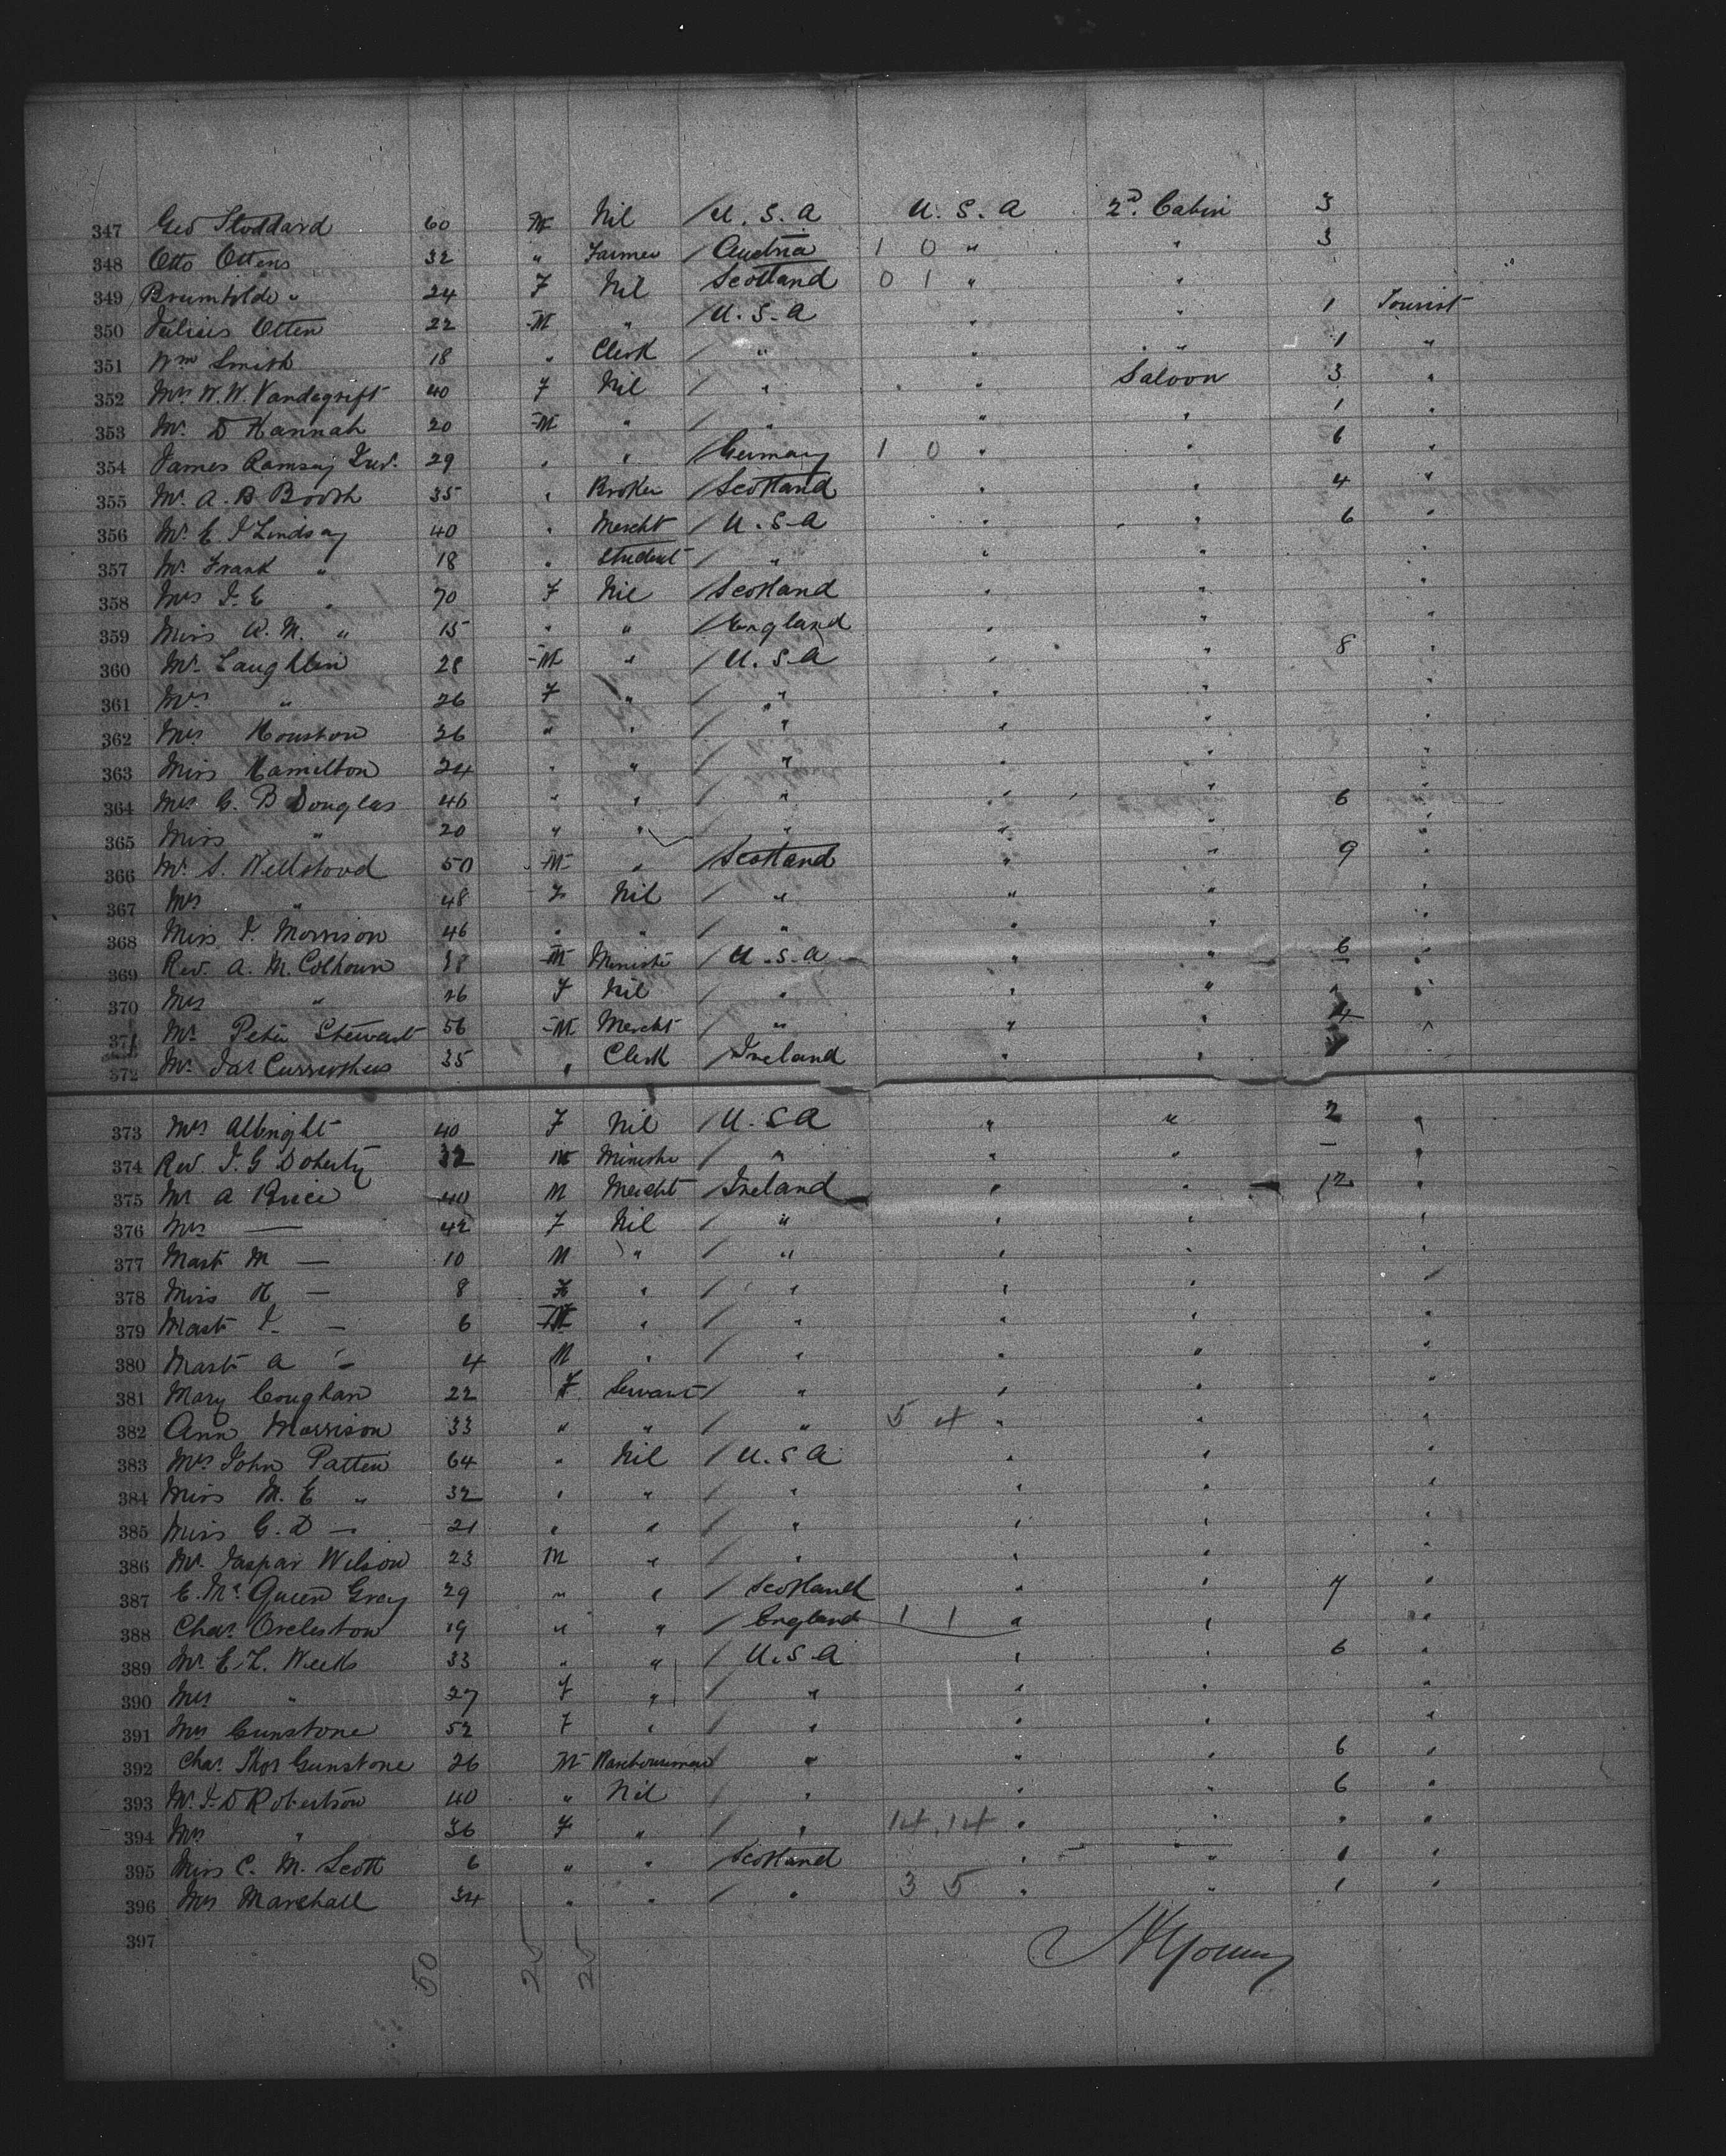 347 Geo Stoddard 60 M Nil / U.S.A U.S.A 2d. Cabin 3
348 Otto Ottens 32 " Farmer / Austria 1 0 " " 3
349 Brumhilde " 24 F Nil Scotland 0 1 " "
350 Julius Otten 22 M " / U.S.A " " 1 Tourist
351 Wm Smith 18 " Clerk / " " " 1 "
352 Mrs W. W. Vandegrift 40 F Nil / " " Saloon 3 "
353 Mr. D Hannah 20 M " / " " " 1 "
354 James Ramsay 29 " " / Germany 1 0 " " 6 "
355 Mr. A. B. Booth 35 " Broker / Scotland " " 4 "
356 Mr. E. J Lindsay 40 " Mercht / U.S.A " " 6 "
357 Mr. Frank " 18 " Student / " " " "
358 Mrs J. E " 70 F Nil / Scotland " " "
359 Miss W. M. " 15 " " / England " " "
360 Mr. Laughlin 28 M " / U.S.A " " 8 "
361 Mrs " 26 F " / " " " "
362 Mrs Houston 26 " " / " " " "
363 Miss Hamilton 24 " " / " " " "
364 Mrs G. B Douglas 46 " " / " " " 6 "
365 Miss " 20 " " / " " " "
366 Mr. S. Wellstood 50 M " / Scotland " " 9 "
367 Mrs " 48 F Nil / " " " "
368 Miss J. Morrison 46 " " / " " " "
369 Rev. A. M. Colhoun 38 M Ministr / U.S.A " " 6 "
370 Mrs " 26 F Nil / " " " "
371 Mr. Peter Stewart 56 M Mercht / " " " 4 "
372 Mr. Jas 35 " Clerk / Ireland " " "
373 Mrs Albright 40 F Nil / U.S.A " " 2 "
374 Rev. J. G Doherty 32 M Ministr / " " " — "
375 Mr A Price 40 M Mercht / Ireland " " 12 "
376 Mrs — 42 F Nil / " " " "
377 Mast M — 10 M " / " " " "
378 Miss H — 8 F " / " " " "
379 Mast J. — 6 M " / " " " "
380 Mast A — 4 M " / " " " "
381 Mary Coughan 22 F Servant / " " " "
382 Ann Morrison 33 " " / " 5 4 " " "
383 Mrs John Patten 64 " Nil / U.S.A " " "
384 Miss M. E " 32 " " / " " " "
385 Miss G. D — 21 " " / " " " "
386 Mr. Jaspar Wilson 23 M " / " " " "
387 E. Mc Queen Gray 29 " " / Scotland " " 7 "
388 Chas. Orcleston 19 " " / England 1 1 " " "
389 Mr. E. L. Weeks 33 " " / U.S.A " " 6 "
390 Mrs " 27 F " / " " " "
391 Mrs Gunstone 52 F " / " " " "
392 Chas. Thos Gunstone 26 M Warehouseman / " " " 6 "
393 Mr. J. D Robertson 40 " Nil / " " " 6 "
394 Mrs " 36 F " / " 14 14 " " " "
395 Miss C. M. Scott 6 " " / Scotland " " 1 "
396 Mrs Marshall 34 " " / " 3 5 " " 1 "
397
50 25 25